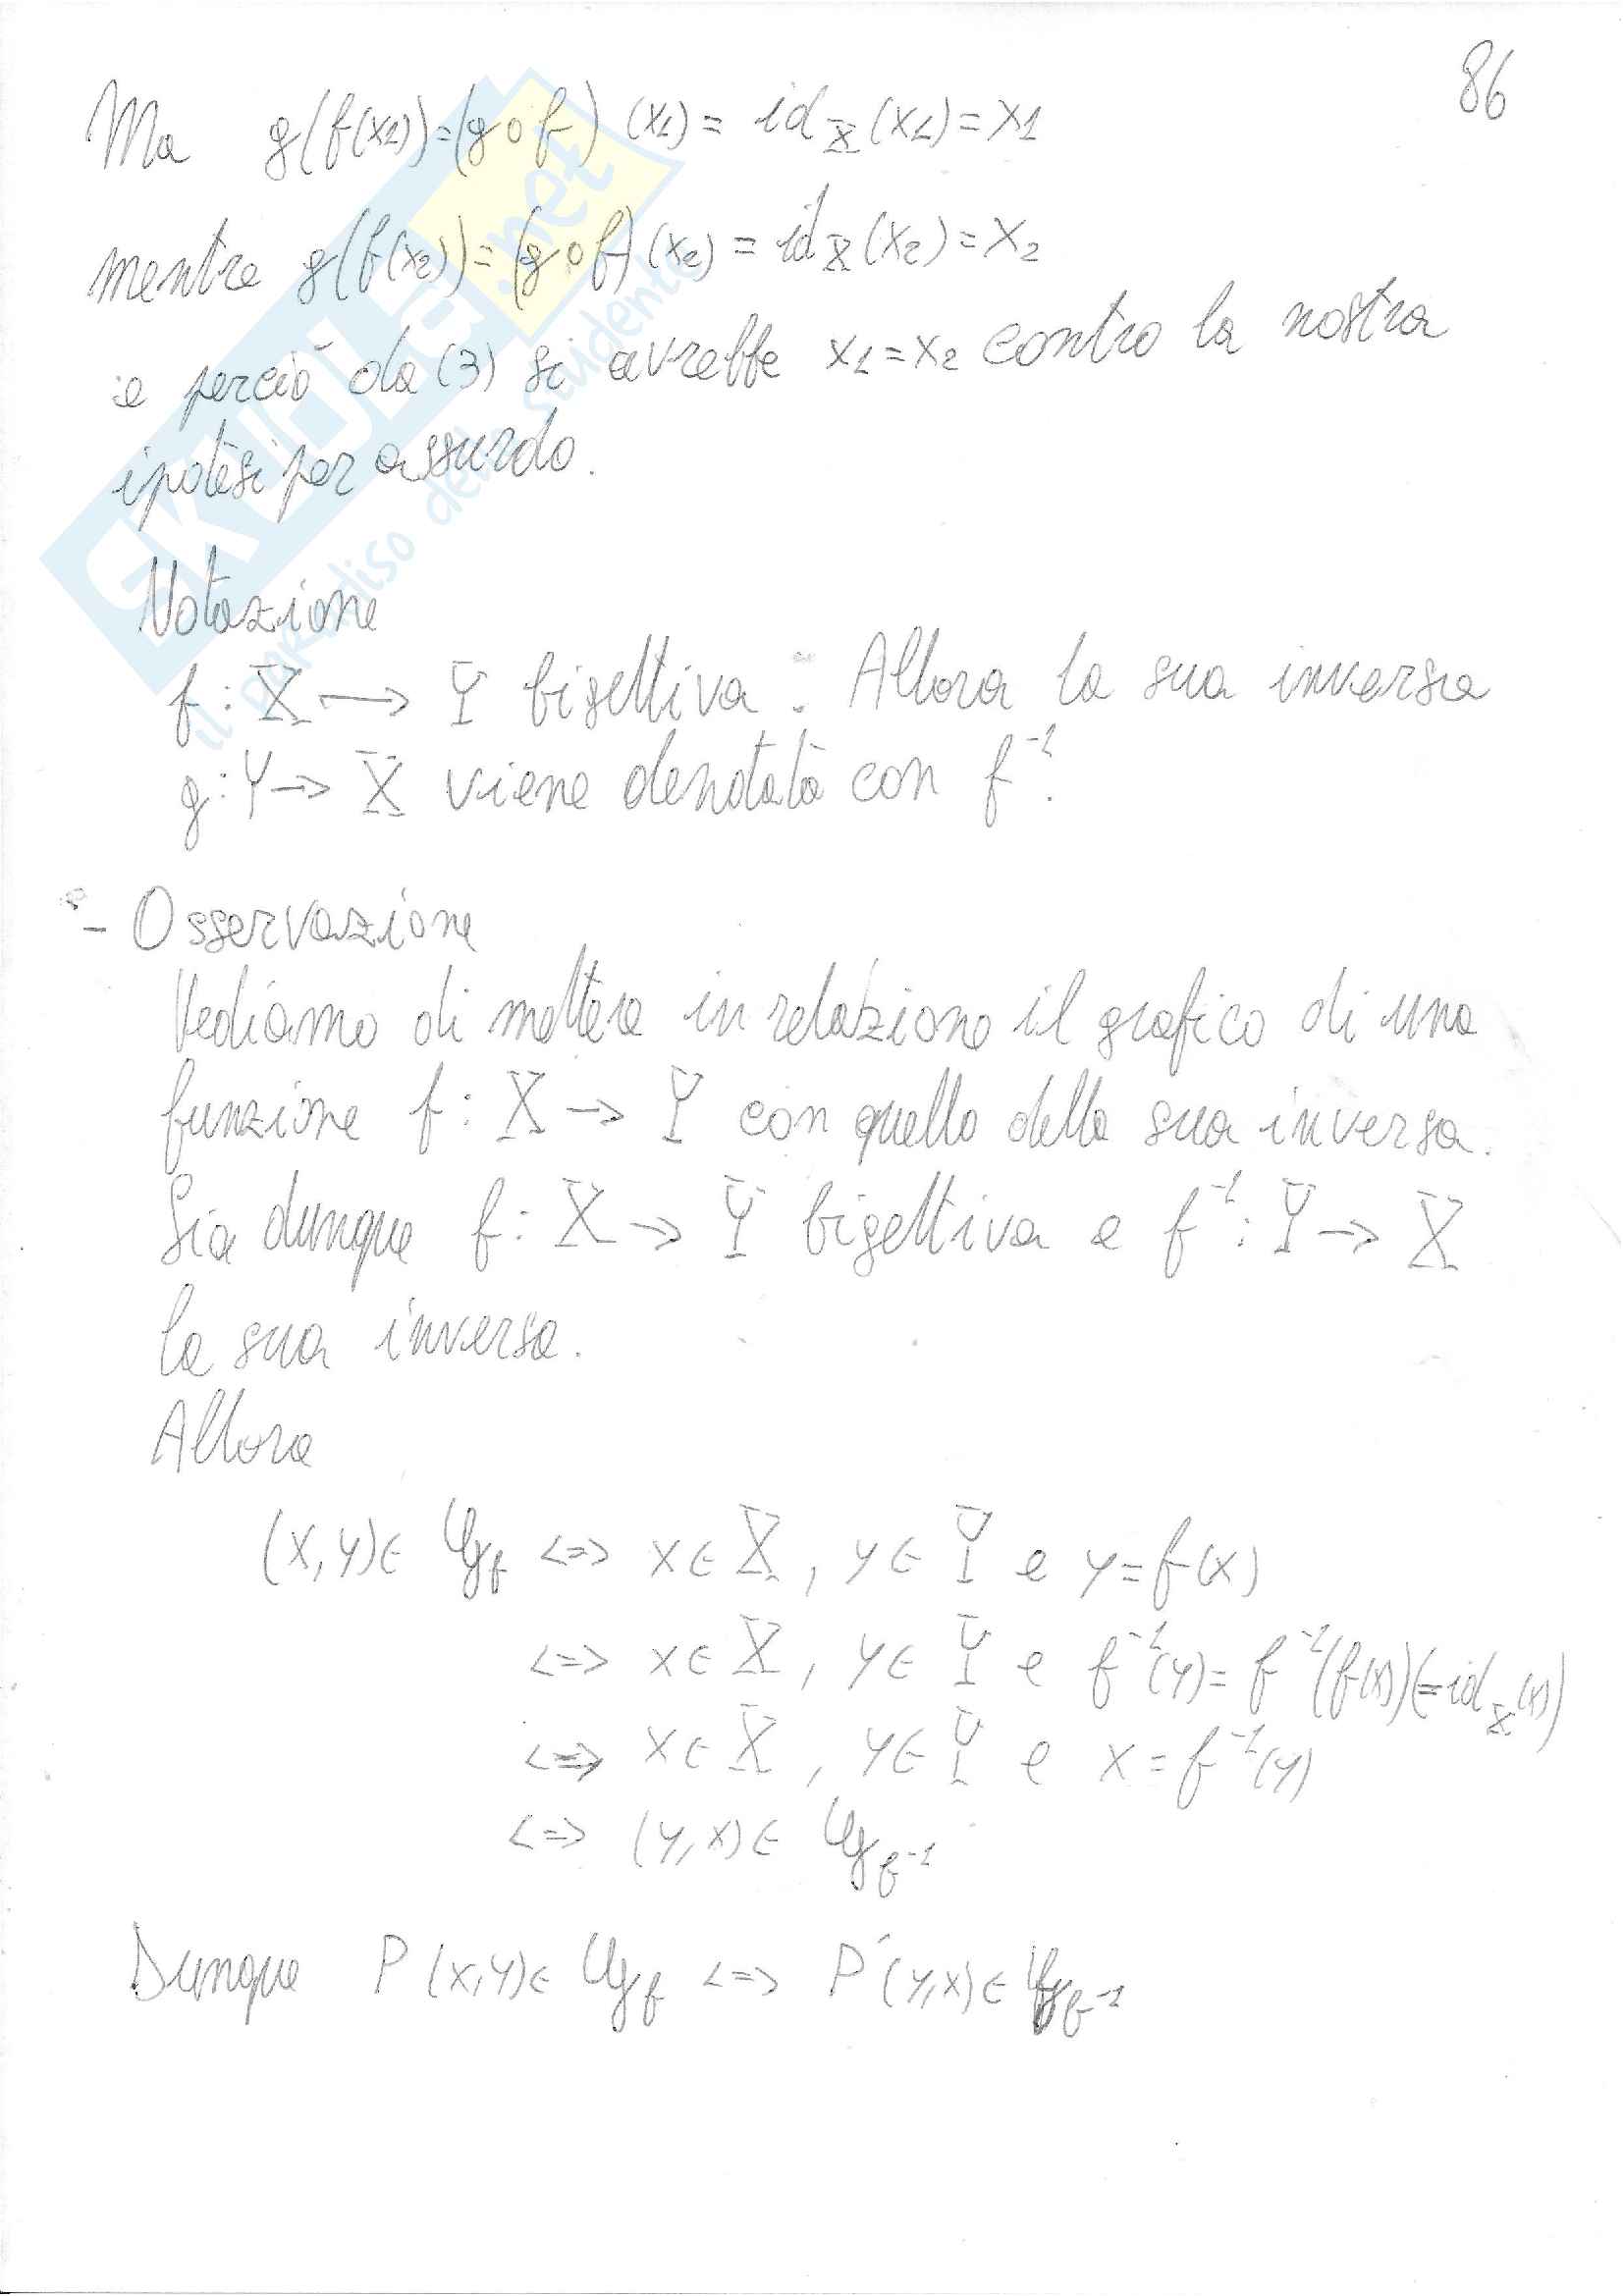 86
Ma g(f(x1))=(g∘f)(x1) = id_X(x1)=x1
mentre g(f(x2))=(g∘f)(x2) = id_X(x2)=x2
e perciò da (3) si avrebbe x1=x2 contro la nostra
ipotesi per assurdo.
Notazione
f: X → Y bigettiva. Allora la sua inversa
g: Y → X viene denotata con f⁻¹.
- Osservazione
Vediamo di mettere in relazione il grafico di una
funzione f: X → Y con quello della sua inversa.
Sia dunque f: X → Y bigettiva e f⁻¹: Y → X
la sua inversa.
Allora
(x,y)∈ 𝒢_f <=> x∈X, y∈Y e y=f(x)
<=> x∈X, y∈Y e f⁻¹(y)= f⁻¹(f(x))(=id_X(x))
<=> x∈X, y∈Y e x=f⁻¹(y)
<=> (y,x)∈ 𝒢_f⁻¹
Dunque P(x,y)∈ 𝒢_f <=> P'(y,x)∈ 𝒢_f⁻¹
SKUOLA.net
il paradiso dello studente